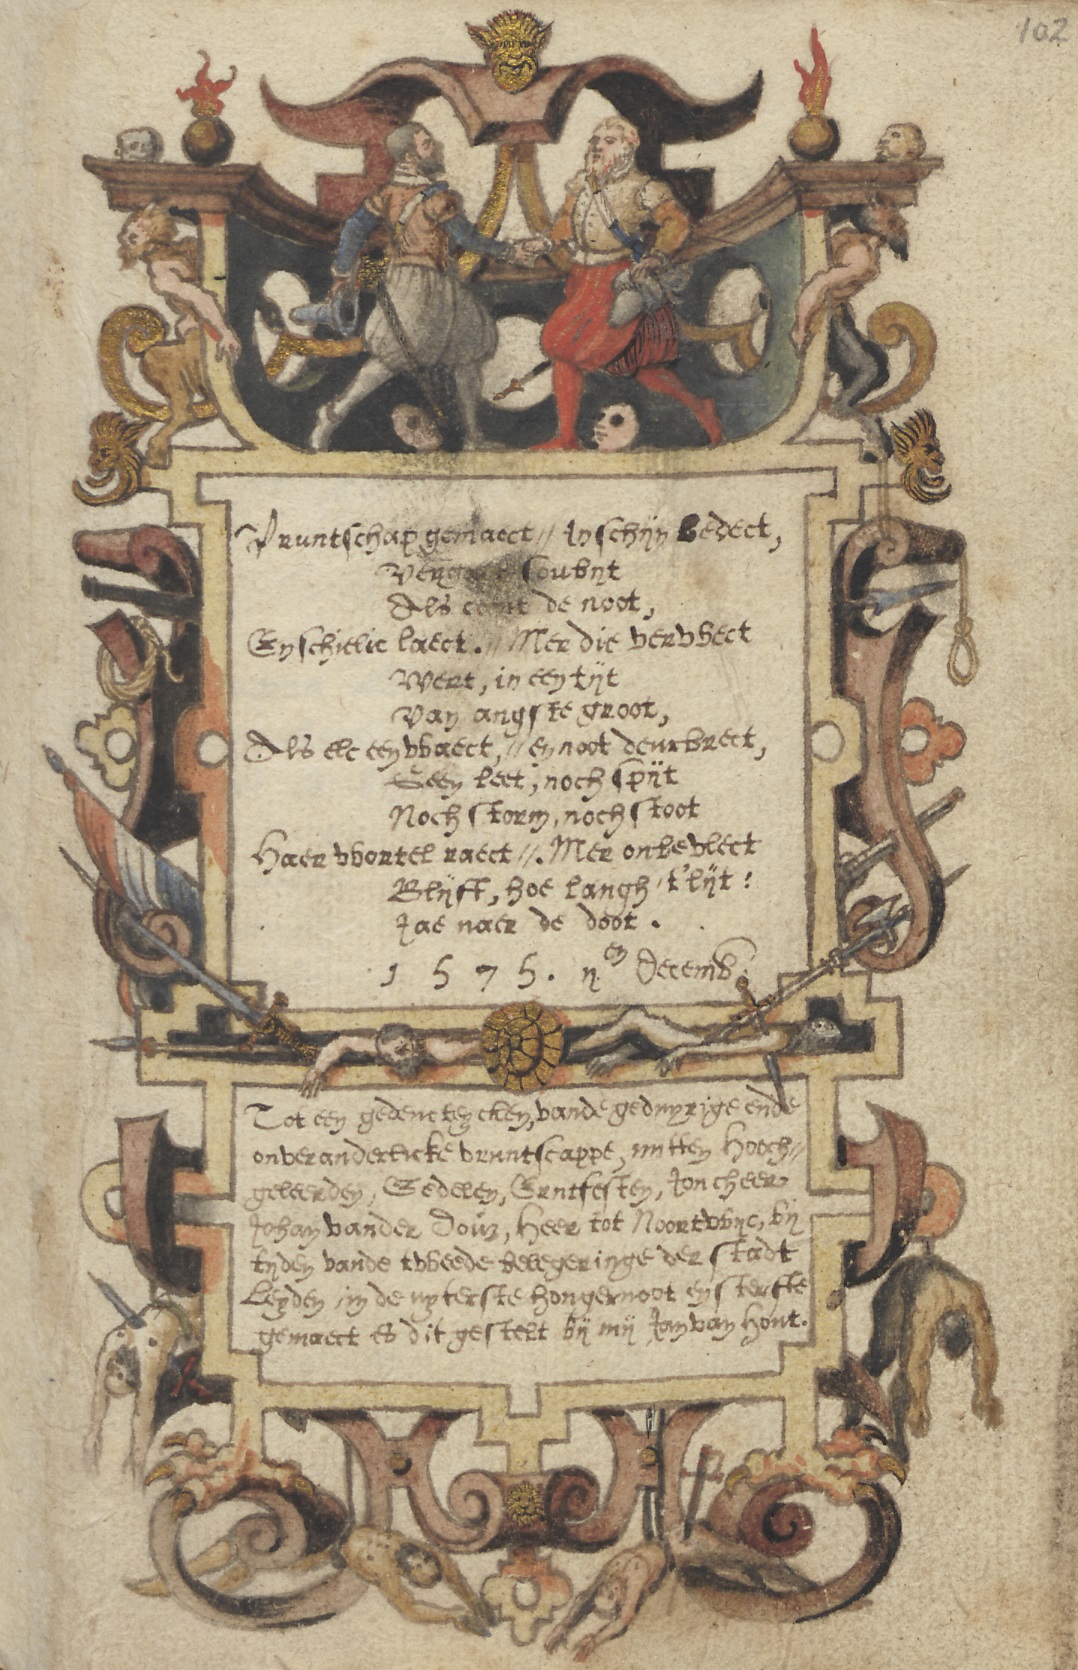 102
Vruntschap gemaect // In schijn bedect,
Vergaet soubijt
Als comt de noot,
En schielic laect. // Mer die verwect
Wert, in een tijt
Van angste groot,
Als elc een waect, // en noot deurbrect,
Geen leet, noch spijt
Noch storm, noch stoot
Haer wortel raect //. Mer onbevlect
Blijft, hoe langh t'lijt:
Jae naer de doot.
1575. en Decemb.
Tot een gedencteycken, vande geduyrige ende
onveranderlicke vruntscappe, mitten Hooch//
geleerden, Eedelen, Erntfesten, Joncheer
Johan vander Douz, Heer tot Noortwijc, bij
tyden vande tweede belegeringe der stadt
Leyden in de uyterste hongernoot en sterfte
gemaect es dit gestelt bij mij Jan van Hout.